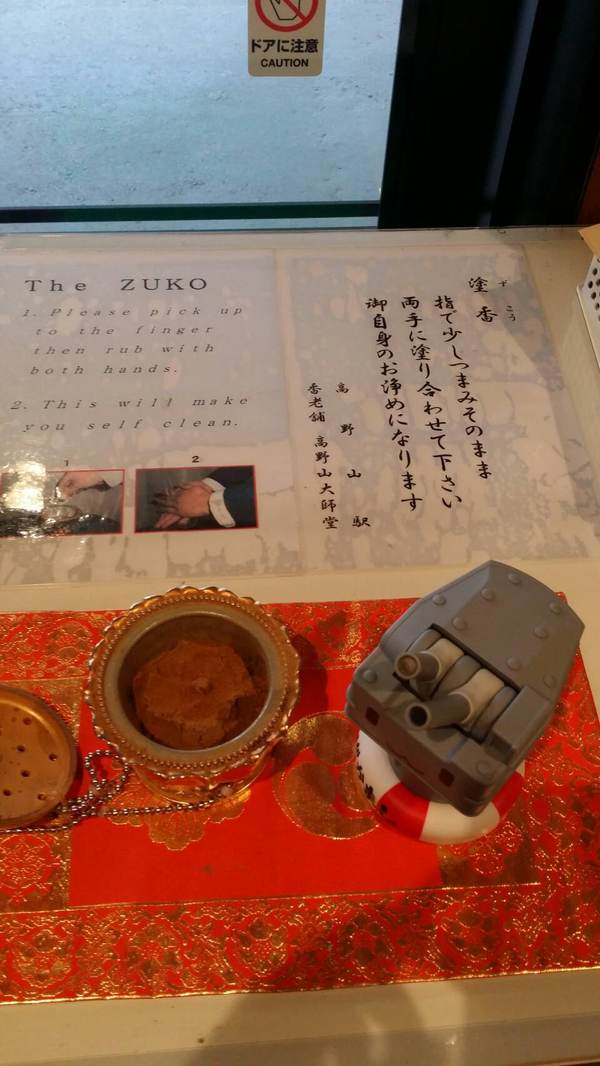 ドアに注意
CAUTION
The ZUKO
1. Please pick up
to the finger
then rub with
both hands.
2. This will make
you self clean.
1
2
塗香
ずこう
指で少しつまみそのまま
両手に塗り合わせて下さい
御自身のお浄めになります
高野山駅
香老舗 高野山大師堂